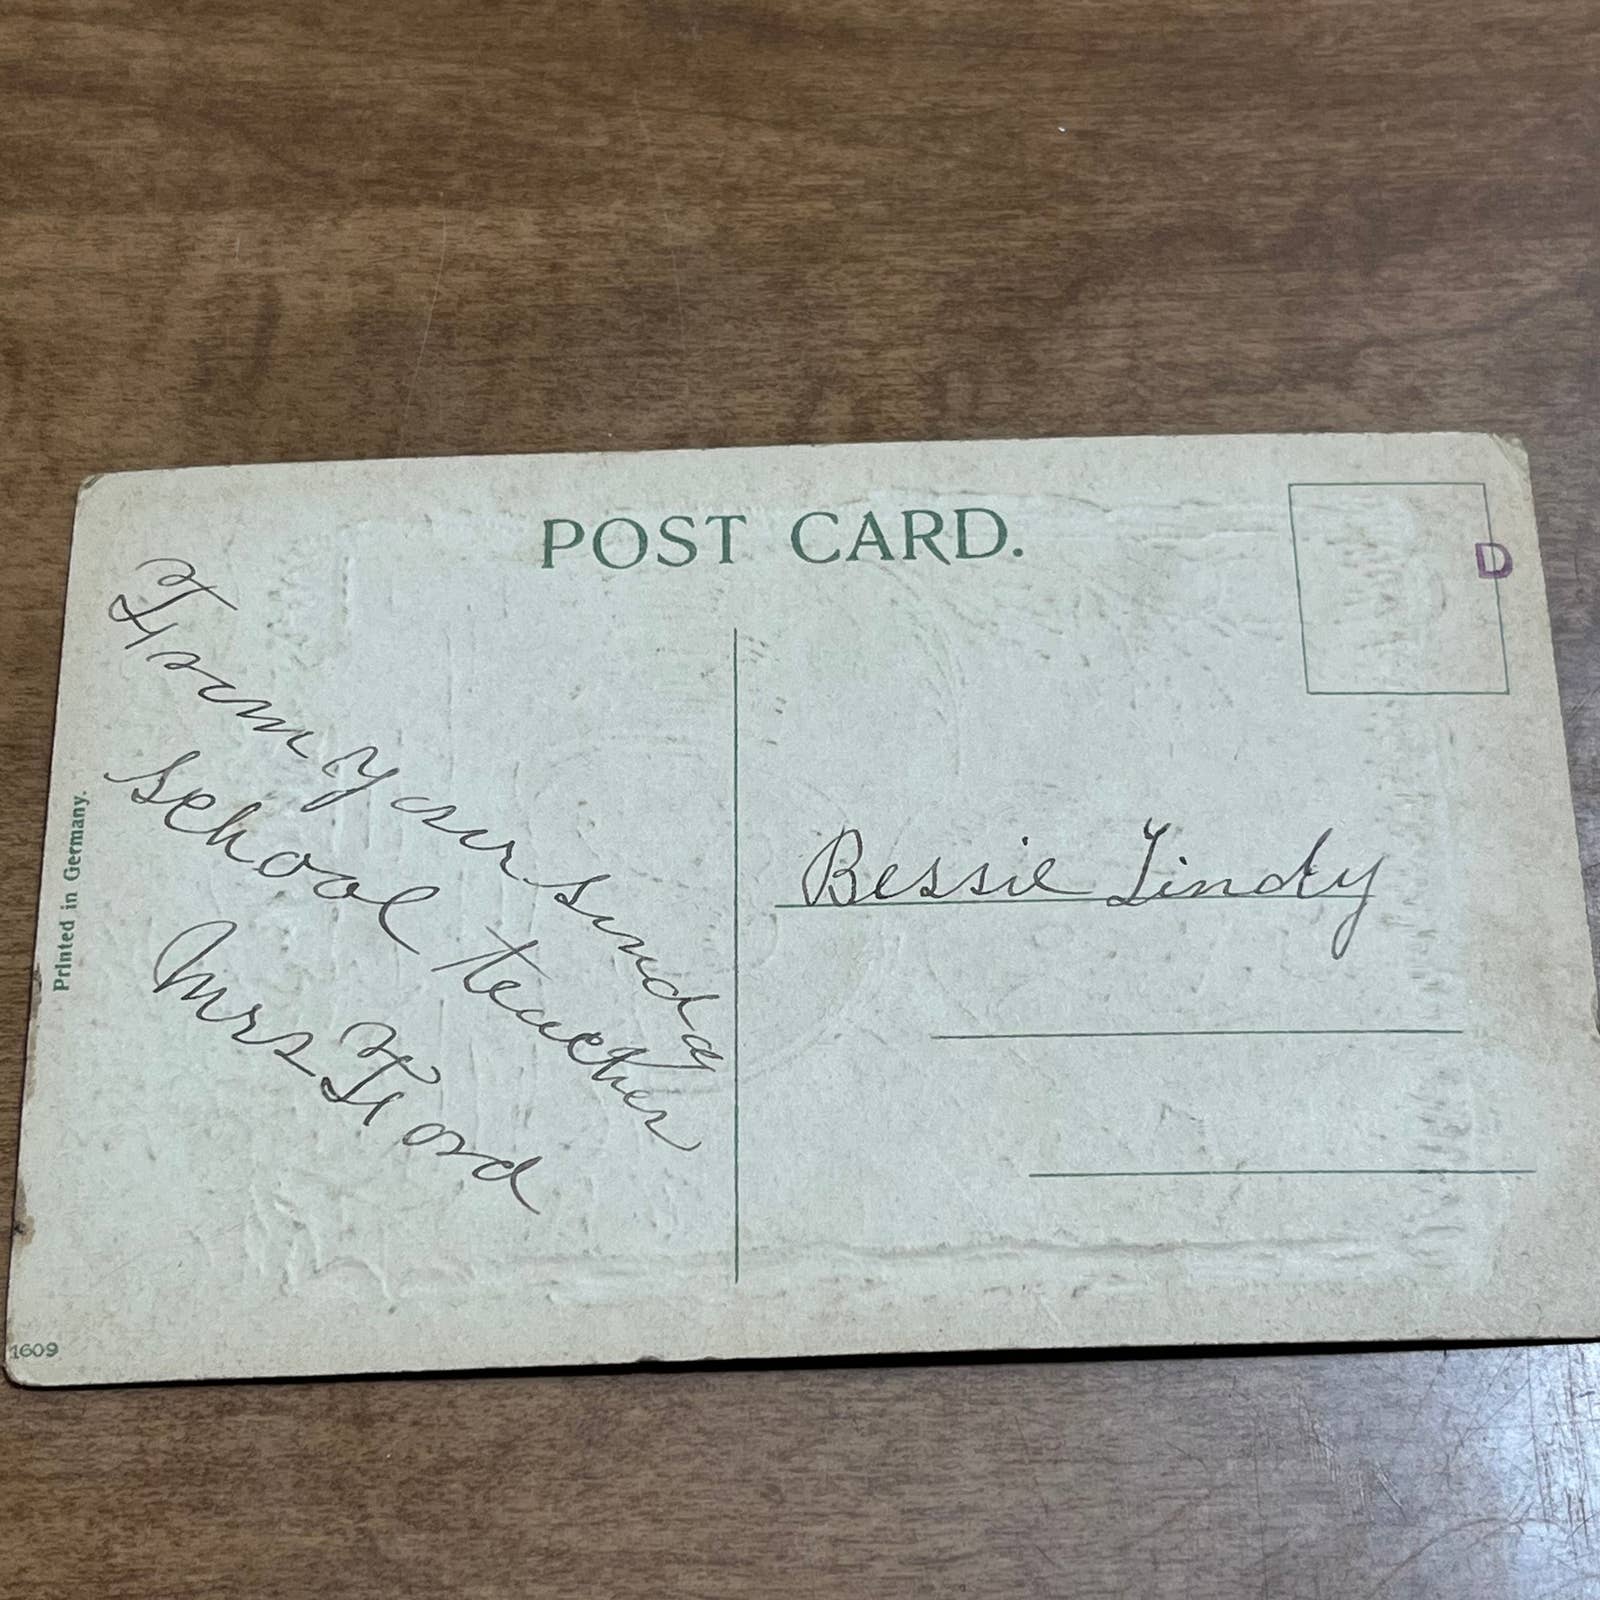 POST CARD.
D
From your sunday
school teacher
Mrs Ford
Bessie Lindy
Printed in Germany.
1609